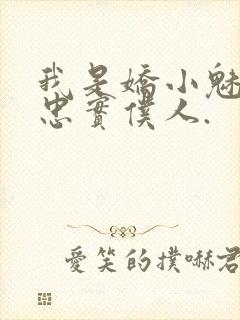 我是嬌小魅
忠實僕人.
愛笑的撲嚇君